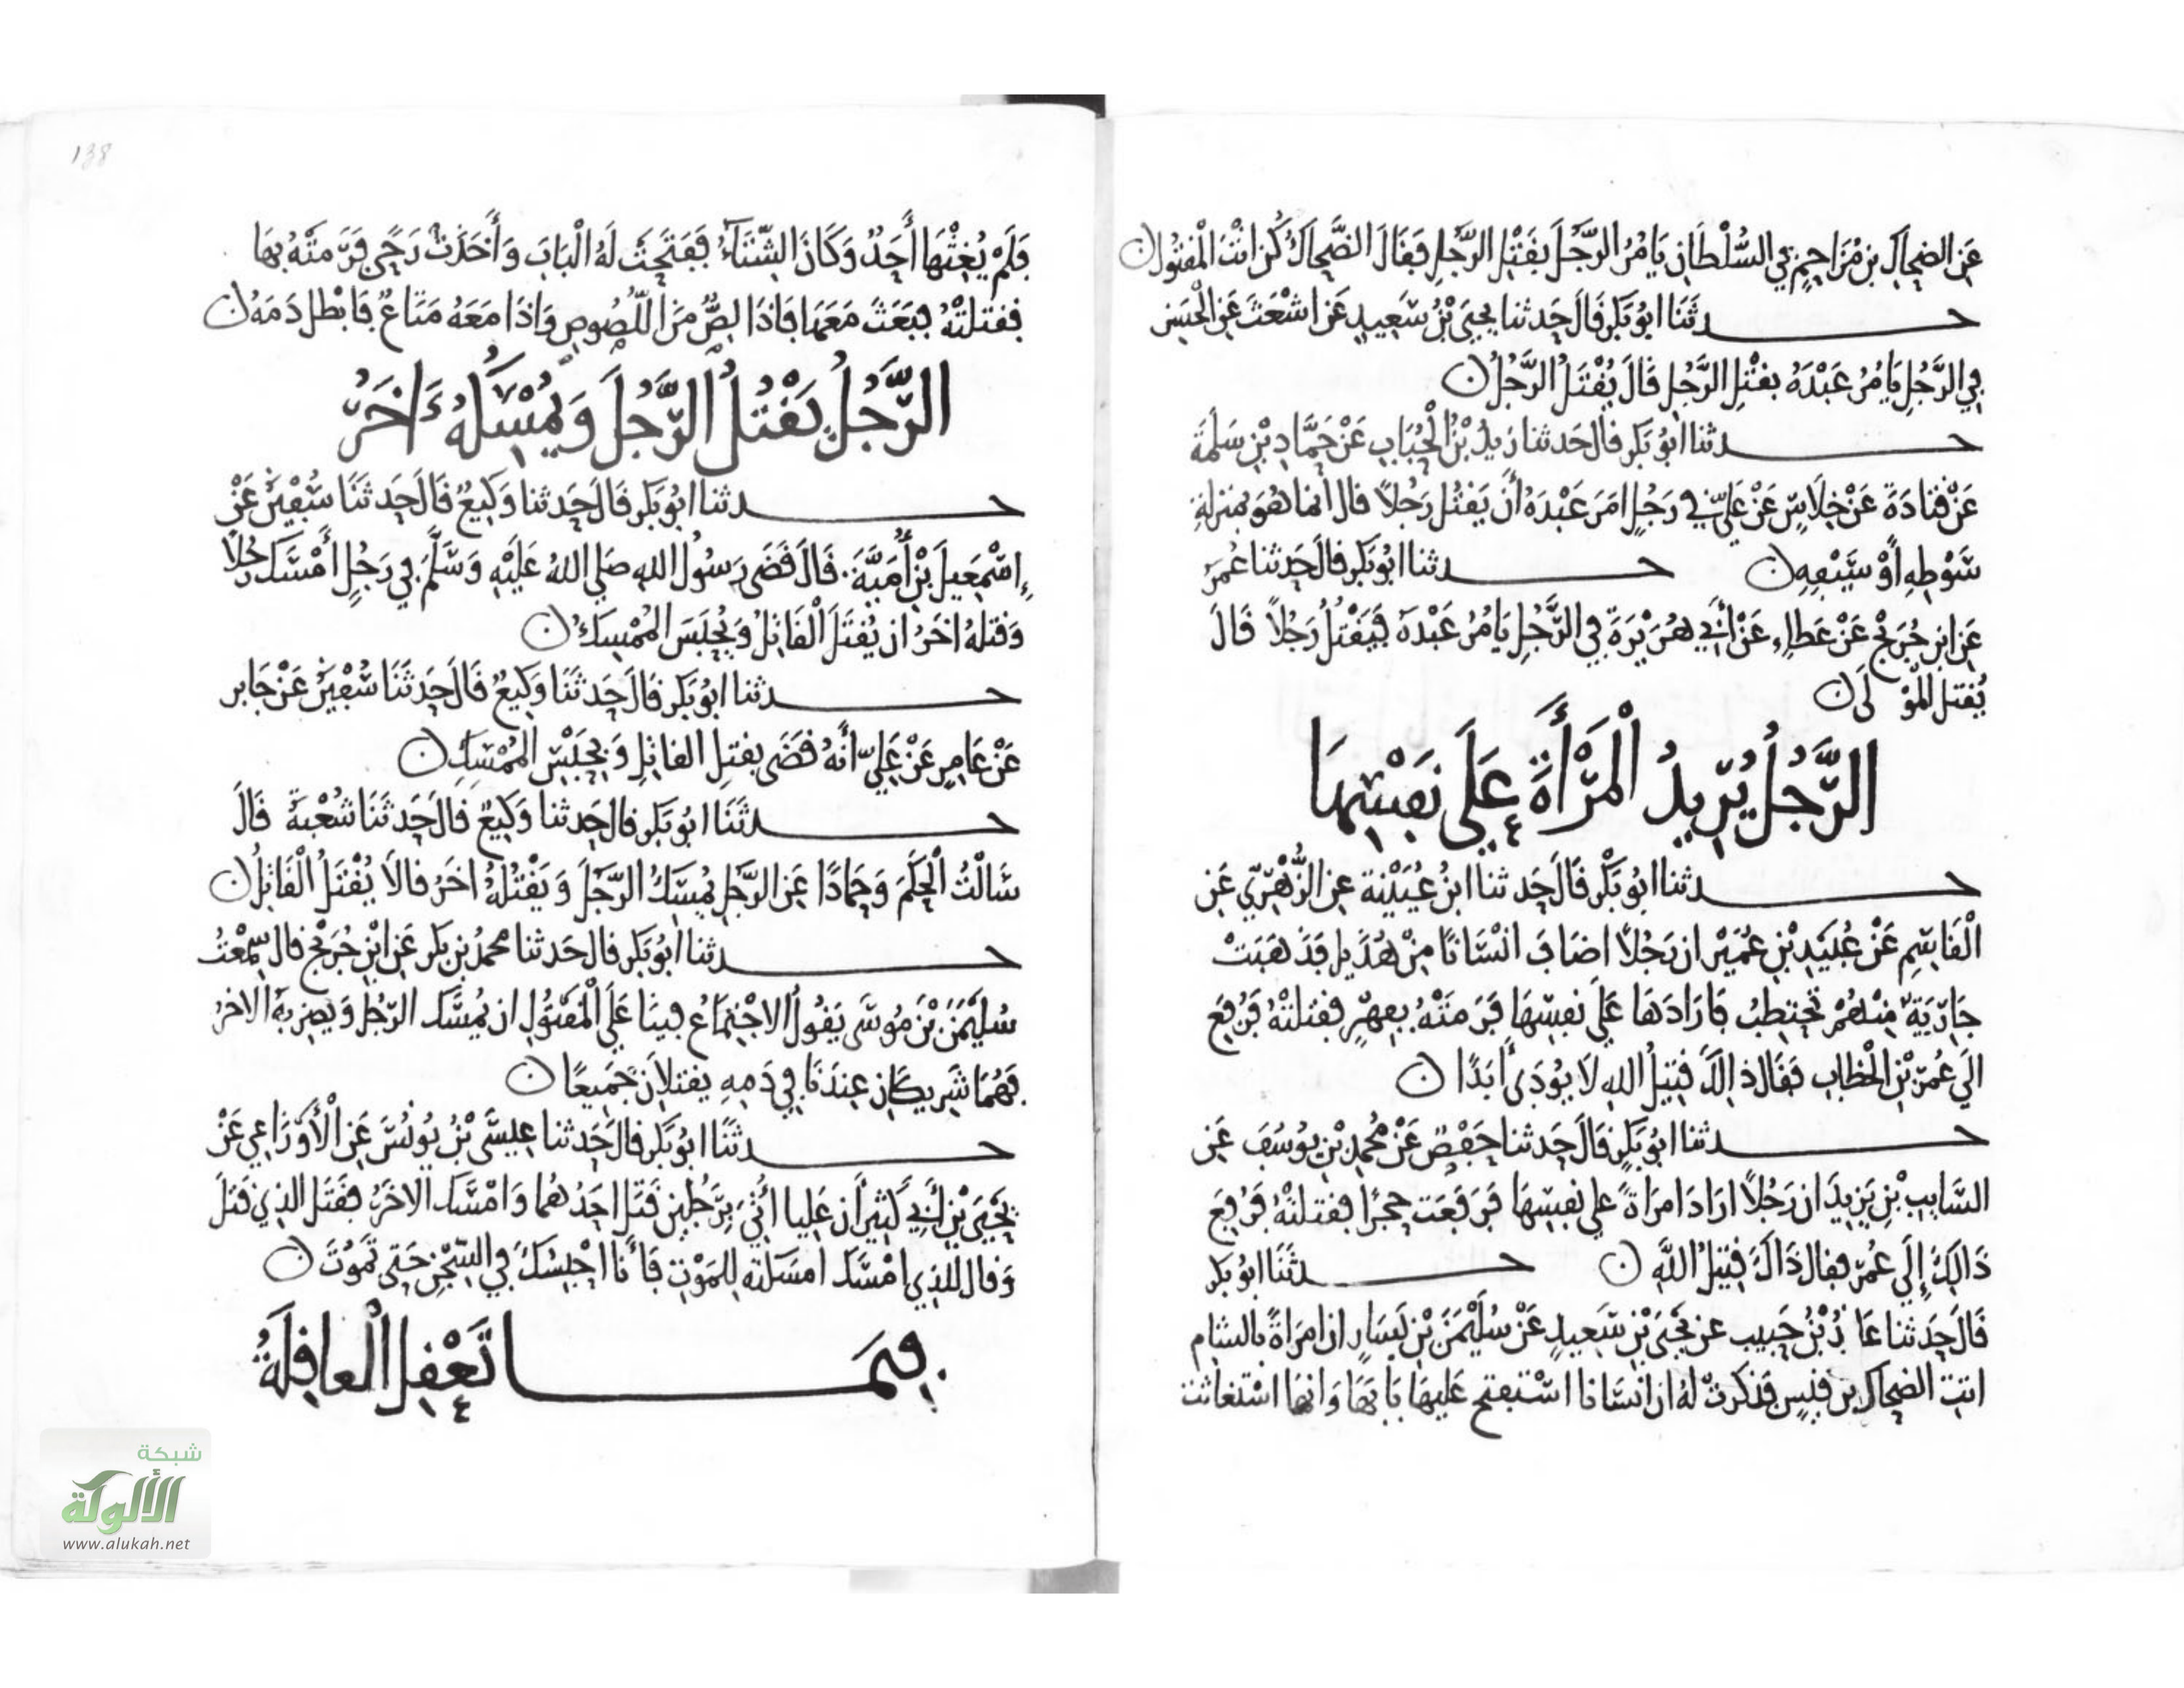 عَن الضحاك بن مُزَاحِمٍ في السُّلْطَانِ يَامُرُ الرَّجُلَ بِقَتْلِ الرَّجُلِ فَقَالَ الضَّحاكُ كُن انْتَ الْمقْتُولَ
حـــدثَنَا ابُو بَكر قَالَ حَدثنا يحيَى بْنُ سَعِيدٍ عَن اشْعَثَ عَن الْحَسَنِ
فِي الرَّجُلِ يَامُرُ عَبْدَهُ بقتْلِ الرَّجُلِ قَالَ يُقْتَلُ الرَّجُلُ
حـــدثنا ابُو بَكر قال حَدثنا زيدُ بْنُ الْحُبَابِ عَنْ حَمَّادِ بْنِ سَلَمَةَ
عَنْ قَتادَةَ عَنْ خِلَاسٍ عَنْ عَليٍّ في رَجُلٍ امَرَ عَبْدَهُ أَن يَقتُل رَجُلًا قال انما هُوَ بمَنزلةِ
سَوْطِهِ أَوْ سَيْفِهِ حـــدثنا ابُو بَكر قال حَدثنا عُمَرُ
عَن ابن جُرَيْج عَنْ عَطاءٍ عَنْ أَبي هُرَيْرَةَ في الرَّجُلِ يَامُرُ عَبْدَهُ فَيَقْتُلُ رَجُلًا قَالَ
يُقتل المَوْ لَى
الرَّجُلُ يُرِيدُ الْمَرْأَةَ عَلَى نَفْسِهَا
حـــدثنا ابُو بَكْر قَالَ حَدثنا ابنُ عُيَيْنة عن الزُّهْرِيِّ عَن
الْقَاسِمِ عَنْ عُبَيْدِ بْنِ عُمَيْرٍ ان رَجُلًا اضَافَ انْسَانًا مِنْ هُذَيل فَذَهَبَتْ
جَارِيَةٌ مِنْهُمْ تَحتطِبُ فَارَادَهَا عَلَى نَفسِهَا فَرَمَتْهُ بِفِهْرٍ فقتلتْهُ فَرُفِعَ
الَى عُمَرَ بْنِ الْخطَّابِ فَقَال ذالكَ قَتِيلُ اللهِ لَا يُودَى أَبَدًا
حـــدثنا ابُو بَكرٍ قَالَ حَدثنا حَفْصٌ عَنْ مُحمدِ بْنِ يُوسُفَ عَن
السَّايِبِ بْنِ يَزِيدَ ان رَجُلًا ارَادَ امرَاةً على نَفسِهَا فَرَفَعَت حجرًا فقتلتْهُ فَرُفِعَ
ذَالِكَ إِلَى عُمَرَ فقال ذَاكَ قَتِيلُ اللَّهِ حـــدثَنَا ابُو بكر
قَالَ حَدثنا عَا ذُ بْنُ حَبيب عن يَحيَى بْنِ سَعِيدٍ عَنْ سُلَيْمَنَ بْنِ يَسَارٍ ان امرَاةً بالشام
اتت الضحاك بن قيسٍ فذكرتْ لهُ ان انسَانا اسْتفتح عَليهَا بَابَهَا وَانهَا اسْتغاثت
فَلَمْ يُغِثْهَا أَحَدٌ وَكَانَ الشِّتَاءُ فَفَتَحَتْ لَهُ الْبَابَ وَأَخَذَتْ رَحًى فَرَمَتْهُ بِهَا
فقتلتْهُ فبَعَثَ مَعَهَا فَاذَا لِصٌّ مِنَ اللُّصُوصِ وَاذَا مَعَهُ مَتَاعٌ فَابْطل دَمَهُ
الرَّجُلُ يَقْتُلُ الرَّجُلَ وَيُمْسِكُهُ ءَاخَرُ
حـــدثنا ابُو بَكر قَالَ حَدثنا وَكِيعٌ قَالَ حَدثَنَا سُفْيَنُ عَنْ
إِسْمَعِيلَ بْنِ أُمَيَّةَ قَالَ قَضَى رَسُولُ اللهِ صَلى اللهُ عَلَيْهِ وَسَلَّمَ فِي رَجُلٍ أَمْسَكَ رَجُلًا
وَقَتلهُ اخَرُ ان يُقتَلَ الْقَاتِلُ وَيُحبَسَ المُمْسِكُ
حـــدثنا ابُو بَكر قَالَ حَدثَنَا وَكِيعٌ قَالَ حَدثَنَا سُفْيَنُ عَنْ جَابر
عَنْ عَامِرٍ عَنْ عَلِيٍّ أَنَّهُ قَضَى بقتلِ القاتِلِ وَبِحَبْسِ المُمْسِكِ
حـــدثَنَا ابُو بَكر قال حَدثنا وَكِيعٌ قالَ حَدثَنَا شُعْبَةُ قَالَ
سَالتُ الْحَكَمَ وَحَمادًا عَن الرَّجُلِ يُمسِكُ الرَّجُلَ وَيَقْتُلُهُ اخَرُ قالَا يُقْتَلُ الْقَاتِلُ
حـــدثنا ابُو بَكر قال حَدثنا محمدُ بن بَكر عَن ابْنِ جُرَيْج قال سَمِعْتُ
سُلَيْمَنَ بْنَ مُوسَى يَقُولُ الاجْتِمَاعُ فينَا عَلَى الْمَقْتُولِ ان يُمْسِكَ الرَّجُل وَيضربهُ الاخرُ
فَهُمَا شَرِيكَانِ عِنْدَنَا فِي دَمِهِ يقتلانِ جَمِيعًا
حـــدثَنَا ابُو بَكر قالَ حَدثنا عِيسَى بْنُ يُونُسَ عَن الْأَوْزَاعِي عَنْ
يَحْيَى بْنِ أَبِي كَثِيرٍ أَن عَلِيا أُتِيَ بِرَجُلَيْنِ قَتَلَ احَدُهُمَا وَامْسَكَ الاخَرُ فقَتَلَ الذي قَتلَ
وَقال للذِي امْسَكَ امسَكتهُ لِلمَوْتِ فَأَنَا احْبِسُكَ فِي السِّجْنِ حَتى تَمُوتَ
فِيمَـــا تَعْقِلُ الْعاقِلَةُ
138
شبكة
الألوكة
www.alukah.net